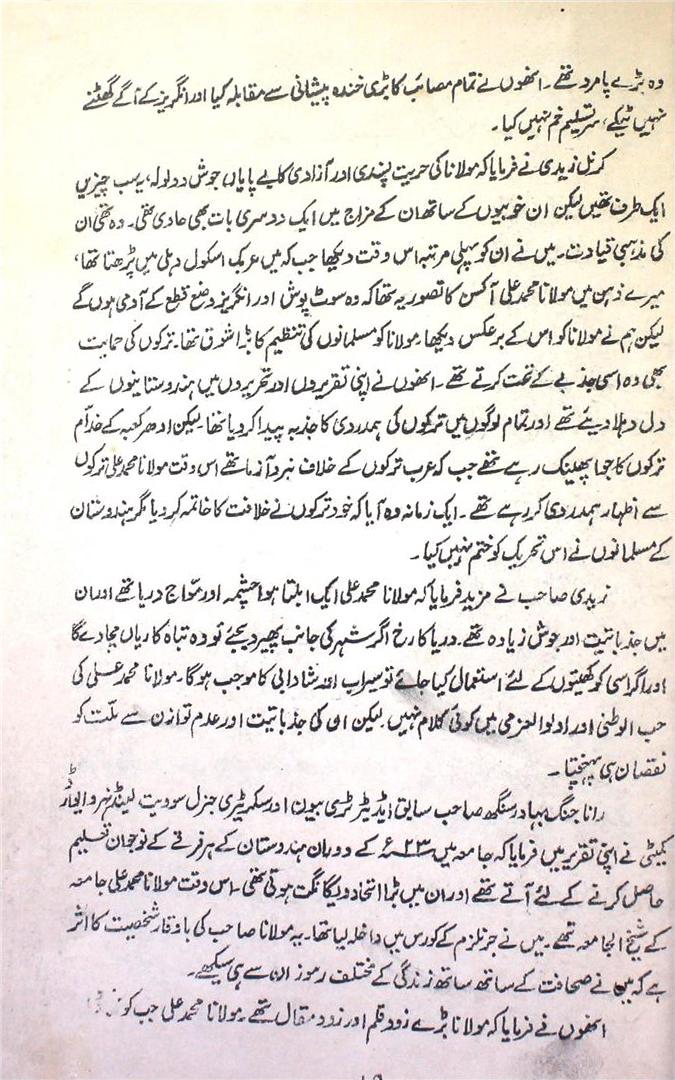 وہ بڑے پامرد تھے ۔ انھوں نے تمام مصائب کا بڑی خندہ پیشانی سے مقابلہ کیا اور انگریز کے آگے گھٹنے
نہیں ٹیکے، سر تسلیم خم نہیں کیا ۔
کرنل زیدی نے فرمایا کہ مولانا کی حریت پسندی اور آزادی کا بے پایاں جوش و ولولہ، یہ سب چیزیں
ایک طرف تھیں لیکن ان خوبیوں کے ساتھ ان کے مزاج میں ایک دوسری بات بھی حاوی تھی ۔ وہ تھی ان
کی مذہبی قیادت ۔ میں نے ان کو پہلی مرتبہ اس وقت دیکھا جب کہ میں عربک اسکول دہلی میں پڑھتا تھا،
میرے ذہن میں مولانا محمد علی آکسن کا تصور یہ تھا کہ وہ سوٹ پوش اور انگریز وضع قطع کے آدمی ہوں گے
لیکن ہم نے مولانا کو اس کے برعکس دیکھا ۔ مولانا کو مسلمانوں کی تنظیم کا بڑا شوق تھا ۔ ترکوں کی حمایت
بھی وہ اسی جذبے کے تحت کرتے تھے ۔ انھوں نے اپنی تقریروں اور تحریروں میں ہندوستانیوں کے
دل دہلا دیئے تھے اور تمام لوگوں میں ترکوں کی ہمدردی کا جذبہ پیدا کر دیا تھا ۔ لیکن ادھر کعبہ کے خدّام
ترکوں کا جوا پھینک رہے تھے جب کہ عرب ترکوں کے خلاف نبرد آزما تھے اس وقت مولانا محمد علی ترکوں
سے اظہار ہمدردی کر رہے تھے ۔ ایک زمانہ وہ آیا کہ خود ترکوں نے خلافت کا خاتمہ کر دیا مگر ہندوستان
کے مسلمانوں نے اس تحریک کو ختم نہیں کیا ۔
زیدی صاحب نے مزید فرمایا کہ مولانا محمد علی ایک ابلتا ہوا چشمہ اور موّاج دریا تھے اور ان
میں جذباتیت اور جوش زیادہ تھے ۔ دریا کا رخ اگر شہر کی جانب پھیر دیجئے تو وہ تباہ کاریاں مچا دے گا
اور اگر اسی کو کھیتوں کے لئے استعمال کیا جائے تو سیراب اور شادابی کا موجب ہو گا ۔ مولانا محمد علی کی
حب الوطنی اور اولوالعزمی میں کوئی کلام نہیں ۔ لیکن ان کی جذباتیت اور عدم توازن سے ملّت کو
نقصان ہی پہنچتا ۔
رانا جنگ بہادر سنگھ صاحب سابق ایڈیٹر ٹری بیون اور سکریٹری جنرل سوویت لینڈ نہرو ایوارڈ
کمیٹی نے اپنی تقریر میں فرمایا کہ جامعہ میں ۲۳ء کے دوران ہندوستان کے ہر فرقے کے نوجوان تعلیم
حاصل کرنے کے لئے آتے تھے اور ان میں بڑا اتحاد ویگانگت ہوتی تھی ۔ اس وقت مولانا محمد علی جامعہ
کے شیخ الجامعہ تھے ۔ میں نے جرنلزم کے کورس میں داخلہ لیا تھا ۔ یہ مولانا صاحب کی باوقار شخصیت کا اثر
ہے کہ میں نے صحافت کے ساتھ ساتھ زندگی کے مختلف رموز ان سے ہی سیکھے ۔
انھوں نے فرمایا کہ مولانا بڑے زود قلم اور زود مقال تھے ۔ مولانا محمد علی جب کوئی